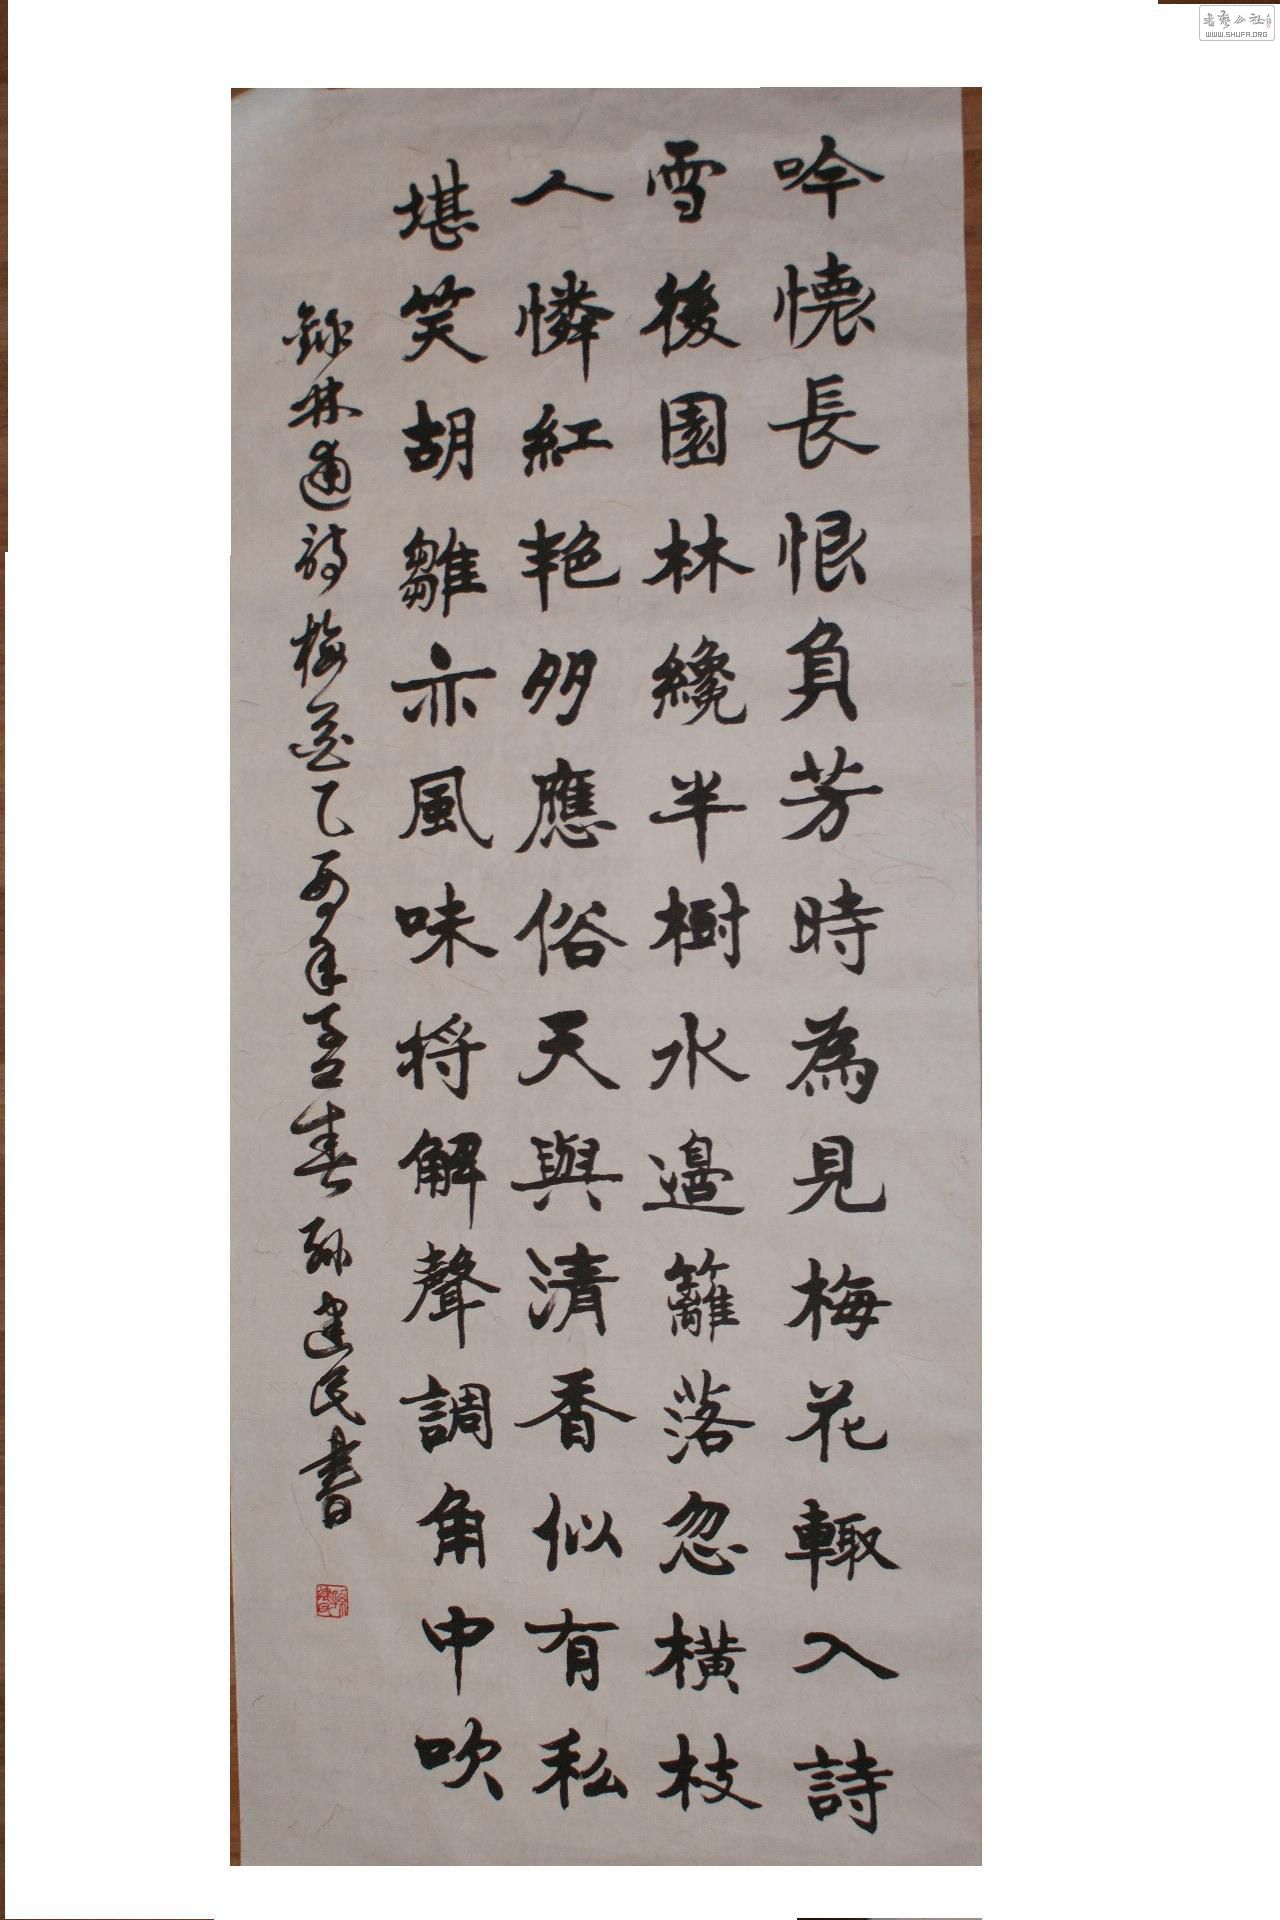 吟懷長恨負芳時為見梅花輙入詩
雪後園林纔半樹水邊籬落忽橫枝
人憐紅艳多應俗天與清香似有私
堪笑胡雛亦風味将解聲調角中吹
錄林逋詩梅花乙酉年孟春孙建民書
書藝公社
WWW.SHUFA.ORG